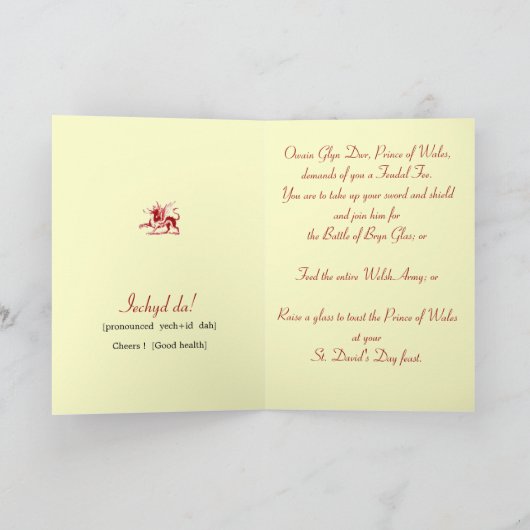 Iechyd da!
[pronounced yech+id dah]
Cheers ! [Good health]
Owain Glyn Dwr, Prince of Wales,
demands of you a Feudal Fee.
You are to take up your sword and shield
and join him for
the Battle of Bryn Glas; or
Feed the entire Welsh Army; or
Raise a glass to toast the Prince of Wales
at your
St. David's Day feast.